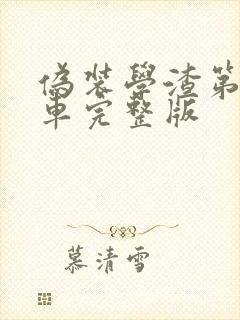 偽裝學渣第
車完整版
慕清雪